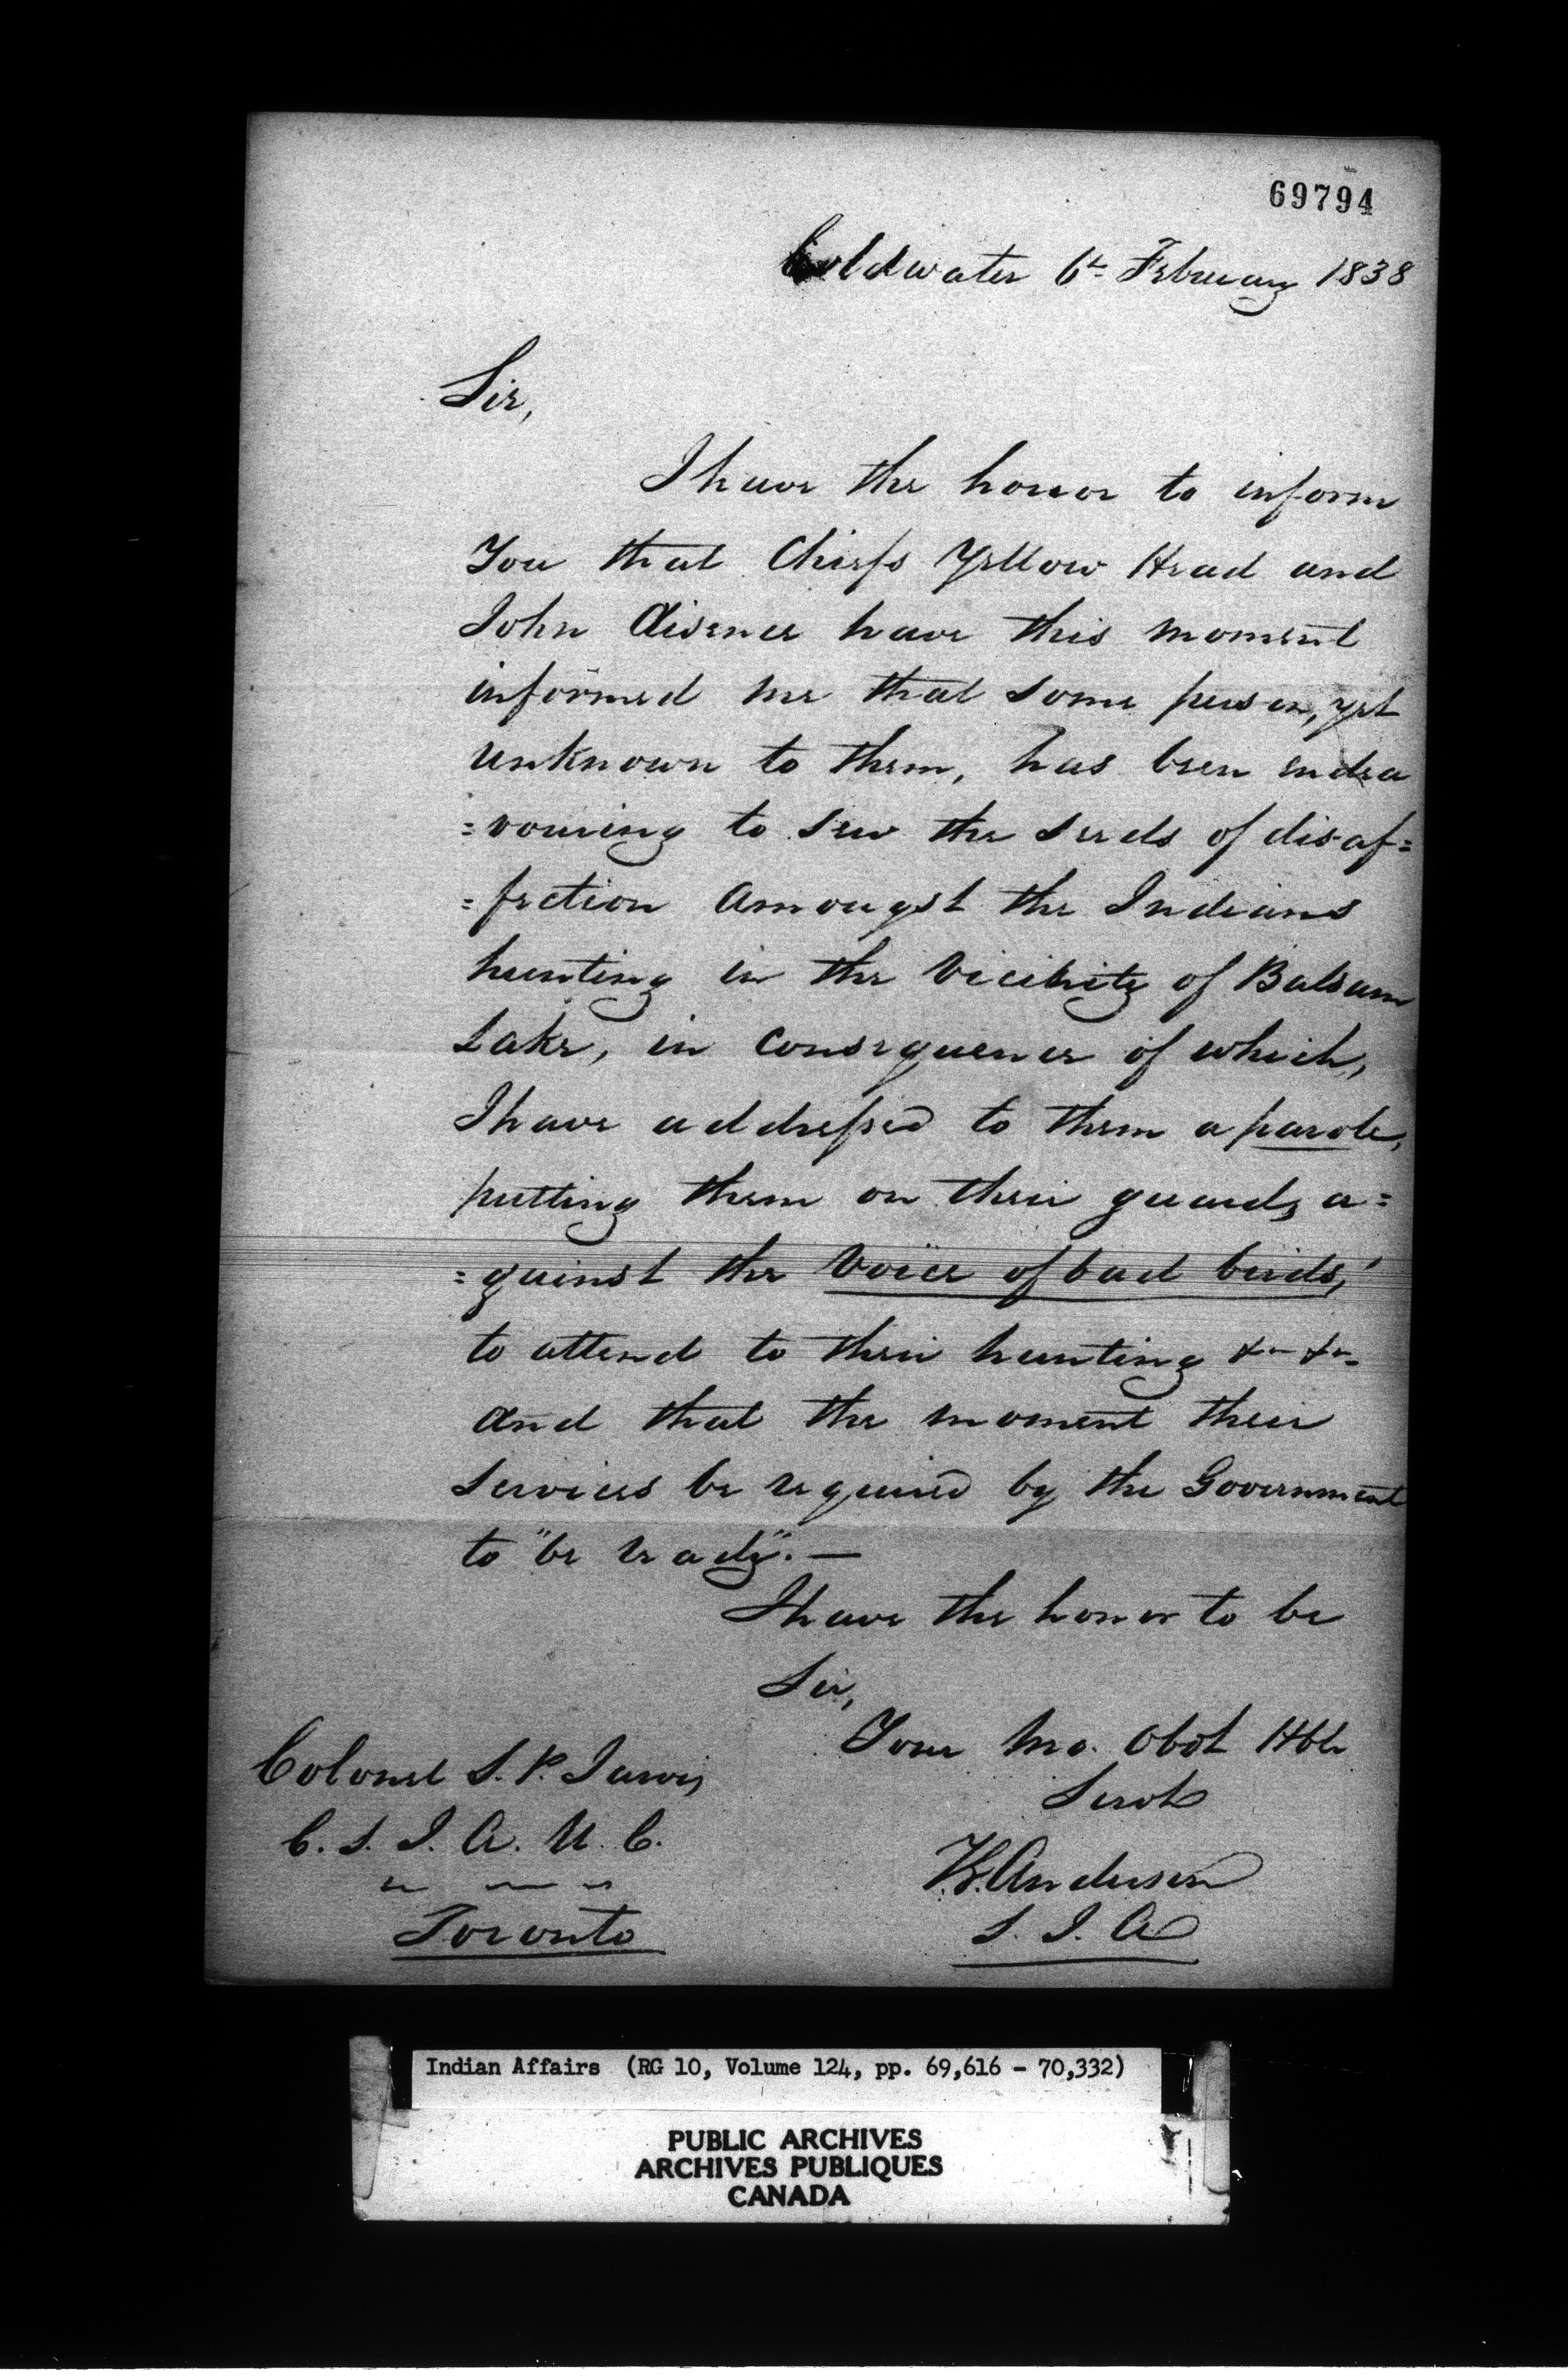 69794
Coldwater 6th February 1838
Sir,
I have the honor to inform
You that Chiefs Yellow Head and
John Aisence have this moment
informed me that some person, yet
unknown to them, has been endea
=vouring to sew the seeds of disaf=
=fection amongst the Indians
hunting in the vicinity of Balsam
Lake, in consequence of which,
I have addressed to them a parole,
putting them on their guard, a=
=gainst the voice of bad birds,
to attend to their hunting &c &c
and that the moment their
services be required by the Government
to "be ready". —
I have the honor to be
Sir,
Your Mo. Obdt Hble
Servt
Colonel S. P. Jarvis
C. S. I. A. U. C.
Toronto
Anderson
S. I. A
Indian Affairs (RG 10, Volume 124, pp. 69,616 - 70,332)
PUBLIC ARCHIVES
ARCHIVES PUBLIQUES
CANADA